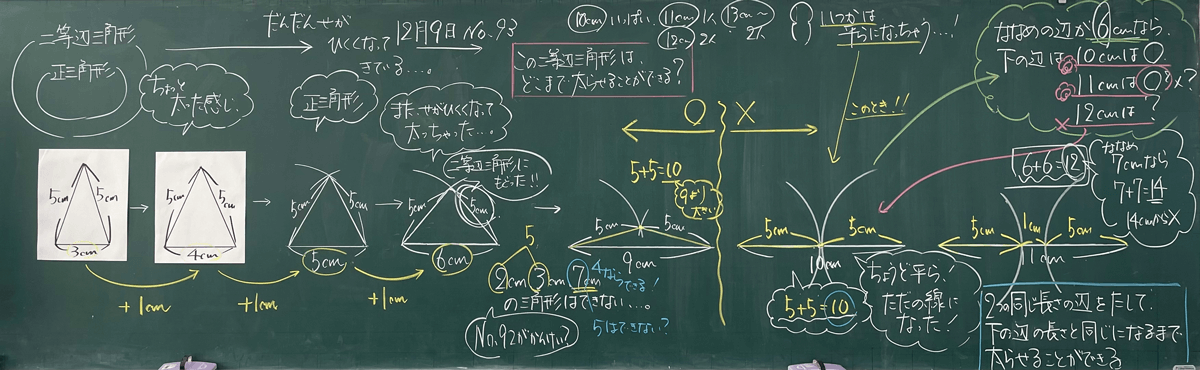 二等辺三角形
正三角形
ちょっと
太った感じ。
だんだんせが
ひくくなって
きている…。
12月9日 No.93
正三角形
また、せがひくくなって
太っちゃった…。
二等辺三角形に
もどった!!
この二等辺三角形は、
どこまで太らせることができる?
10cm いっぱい 11cm 1人 13cm〜
12cm 2人 2人
いつかは
平らになっちゃう…!
このとき!!
ななめの辺が6cmなら、
下の辺は 10cmは○
11cmは○?
12cmは?
×
○ ×
5cm 5cm
3cm
5cm 5cm
4cm
5cm 5cm
5cm
5cm 5cm
6cm
+1cm
+1cm
+1cm
5
2cm 3cm 7cm
の三角形はできない…。
4ならできる!
5はできない?
No.92がかんけい?
5+5=10
9より
大きい
5cm 5cm
9cm
5cm 5cm
10cm
5+5=10
ちょうど平ら!
ただの線に
なった!
6+6=12
ななめ
7cmなら
7+7=14
14cmから×
5cm 1cm 5cm
11cm
2つの同じ長さの辺をたして、
下の辺の長さと同じになるまで
太らせることができる